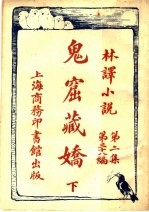 林譯小說
第二集
第二十編
鬼窟藏嬌
下
上海商務印書館出版